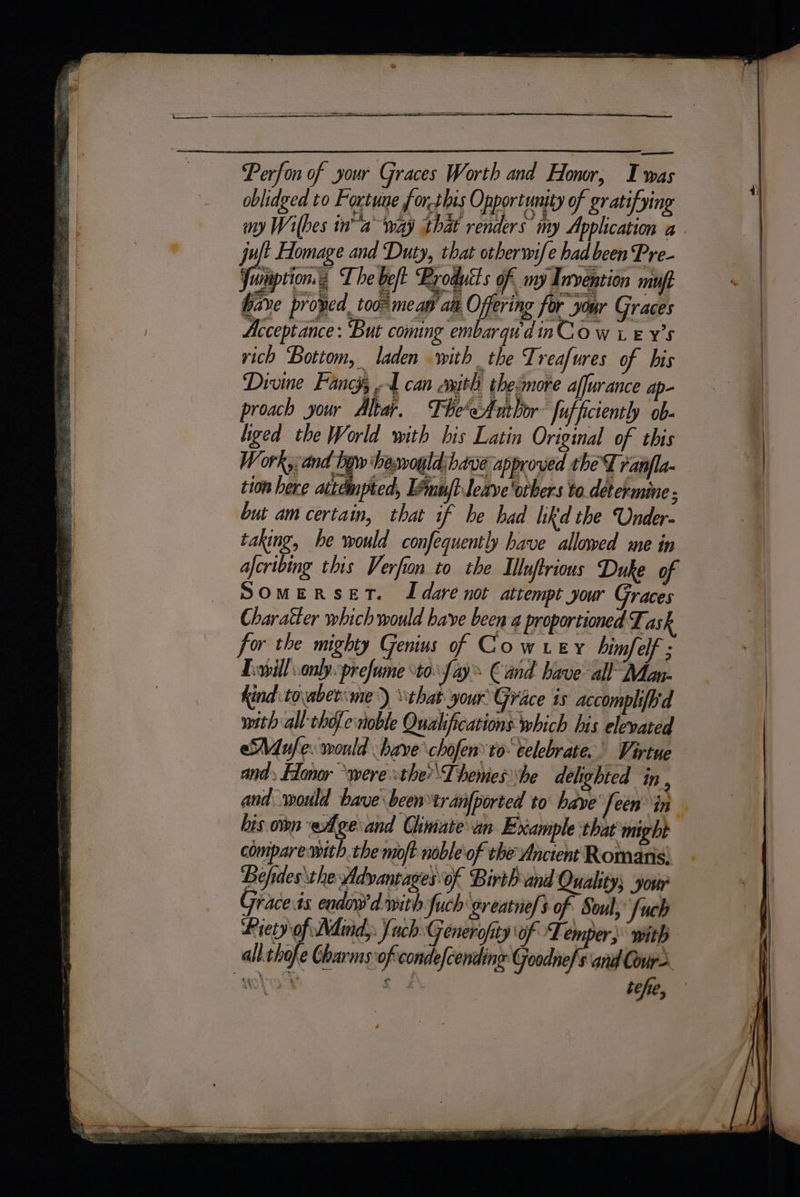 Perſon of your Graces Worth and Honor, I was
oblidged to Fortune for this Opportunity of gratifying
my Wiſhes in a way that renders my Application a
juſt Homage and Duty, that otherwiſe had been Pre-
ſumption. The beſt Products of my Invention muſt
have proved too mean an Offering for your Graces
Acceptance: But coming embarqu'd in COWLEY's
rich Bottom, laden with the Treaſures of his
Divine Fancy, I can with the more aſſurance ap-
proach your Altar. The Author ſufficiently ob-
liged the World with his Latin Original of this
Work, and how he would have approved the Tranſla-
tion here attempted, I muſt leave others to determine;
but am certain, that if he had lik'd the Under-
taking, he would conſequently have allowed me in
aſcribing this Verſion to the Illuſtrious Duke of
SOMERSET. I dare not attempt your Graces
Character which would have been a proportioned Task
for the mighty Genius of COWLEY himſelf;
I will only preſume to ſay (and have all Man-
kind to abet me) that your Grace is accompliſh'd
with all thoſe noble Qualifications which his elevated
Muſe would have choſen to celebrate. Virtue
and Honor were the Themes he delighted in,
and would have been tranſported to have ſeen in
his own Age and Climate an Example that might
compare with the moſt noble of the Ancient Romans.
Beſides the Advantages of Birth and Quality, your
Grace is endow'd with ſuch greatneſs of Soul, ſuch
Piety of Mind, ſuch Generoſity of Temper, with
all thoſe Charms of condeſcending Goodneſs and Cour-
teſie,